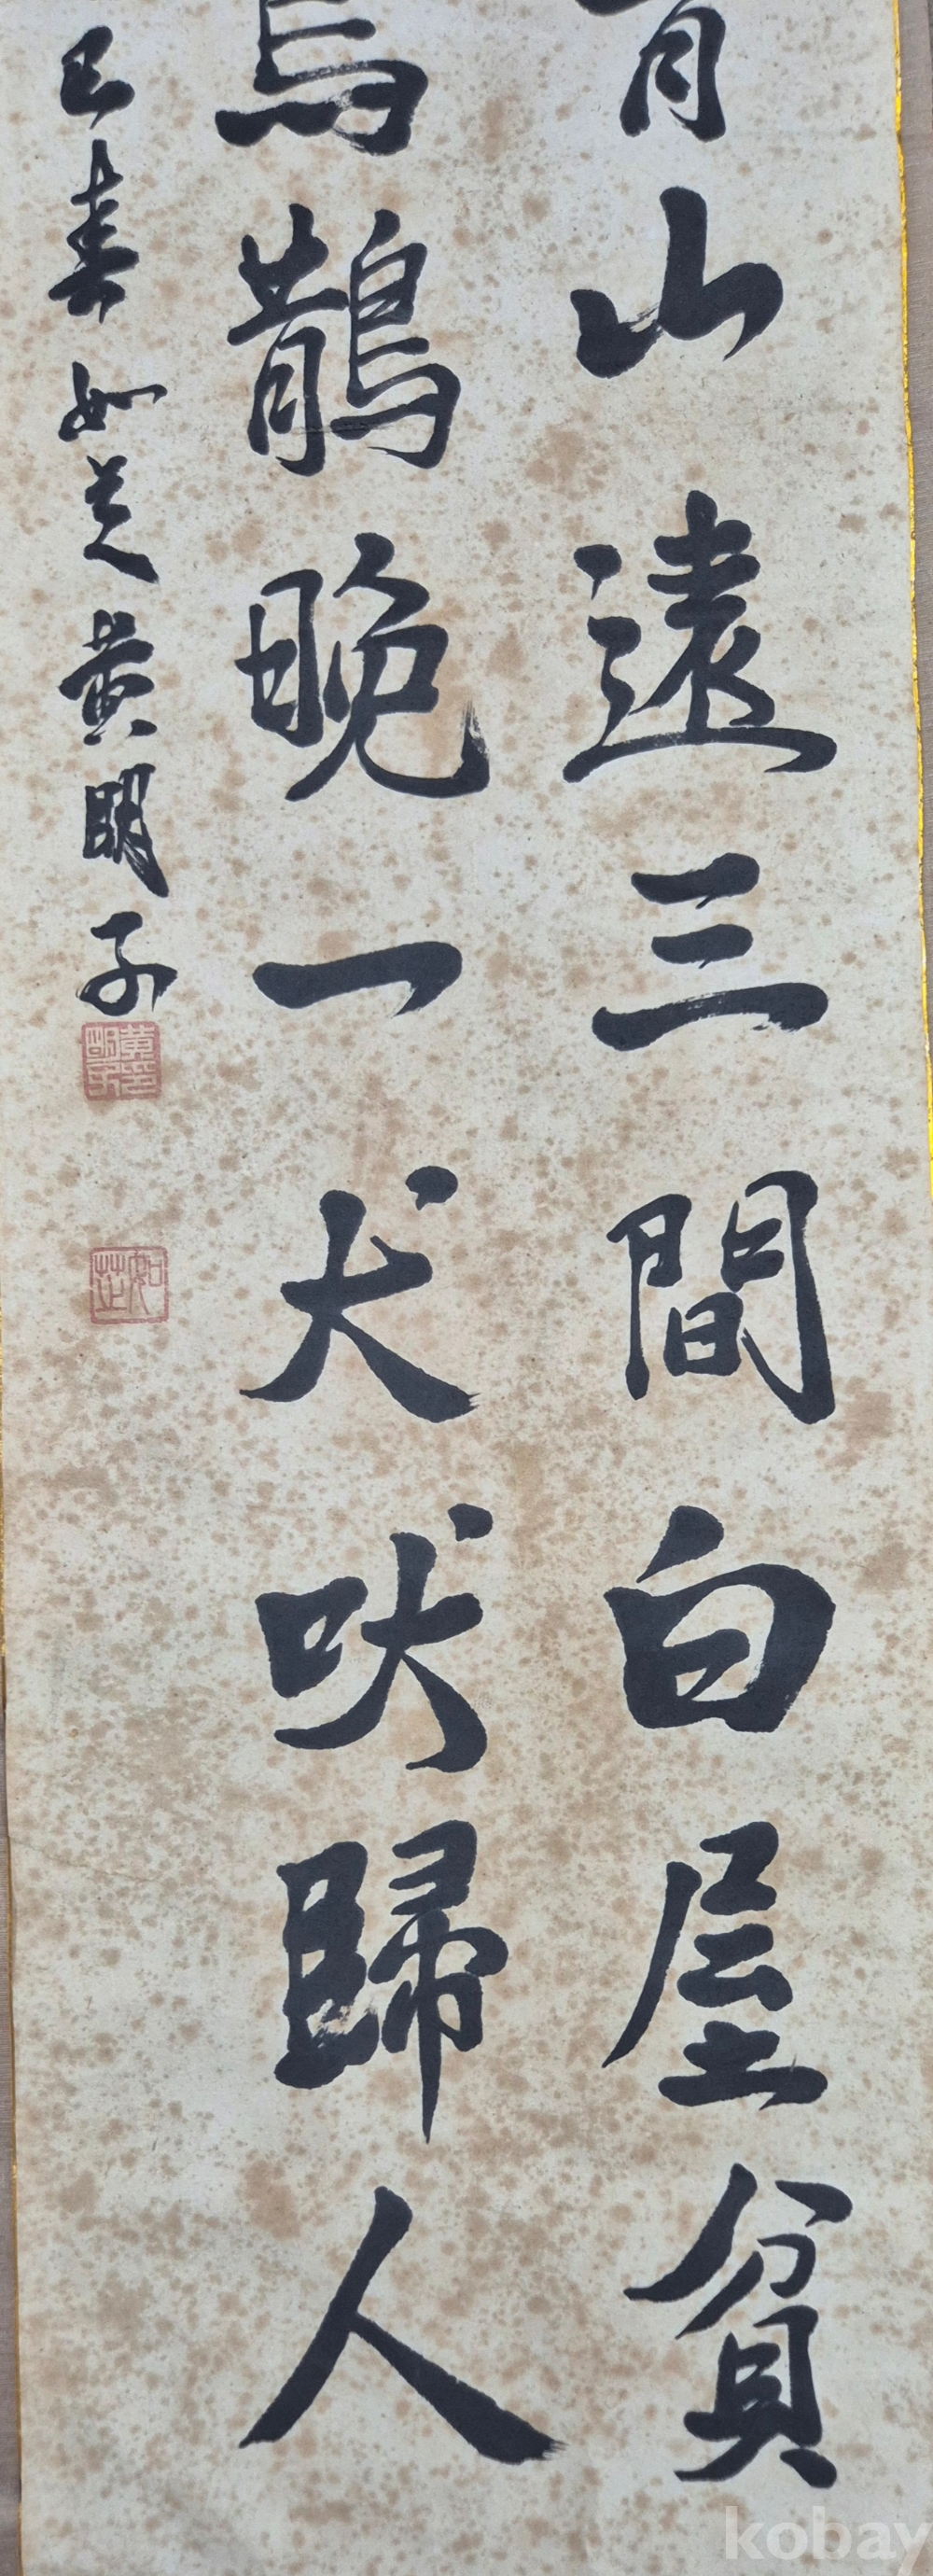 青山遠三間白屋貧
烏鵲晩一犬吠歸人
己春如芝黄明子
如芷
kobay